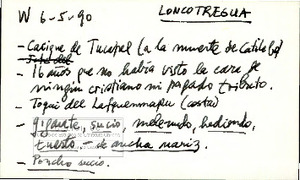 W 6-5-90 LONCOTREGUA
- Cacique de Tucapel (a la muerte de Catilo
- 16 años que no habia visto la cara de
ningún cristiano ni pagado tributo.
- Toqui del Lafquenmapu (costa)
- gigante, sucio, melenudo, hediondo,
tuerto - de ancha nariz.
- Poncho sucio.